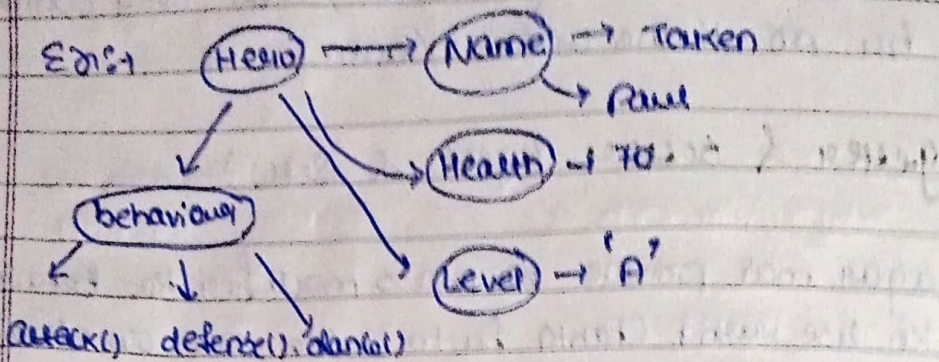 Hero → Name → Taken
→ Paul
Health → 70.
behaviour
Level → 'A'
attack() defense(). dance()